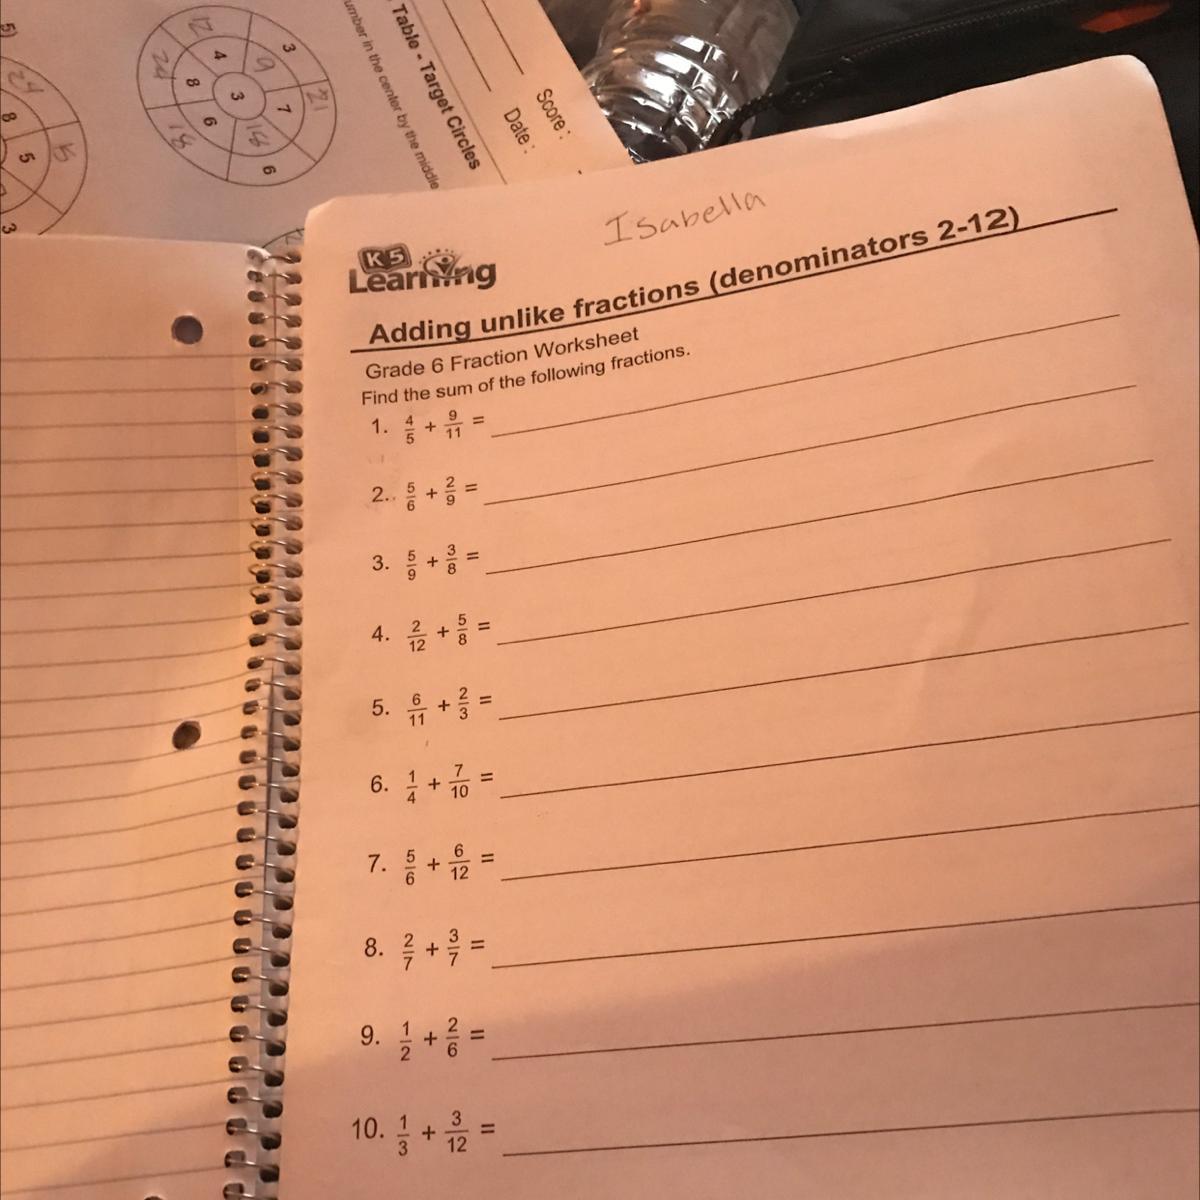 5)
24
8
5
15
3
12
4
3
9
24
8
3
7
21
18
6
18
6
Table - Target Circles
number in the center by the middle
Score :
Date :
Isabella
K5
Learning
Adding unlike fractions (denominators 2-12)
Grade 6 Fraction Worksheet
Find the sum of the following fractions.
1. 4/5 + 9/11 =
2. 5/6 + 2/9 =
3. 5/9 + 3/8 =
4. 2/12 + 5/8 =
5. 6/11 + 2/3 =
6. 1/4 + 7/10 =
7. 5/6 + 6/12 =
8. 2/7 + 3/7 =
9. 1/2 + 2/6 =
10. 1/3 + 3/12 =